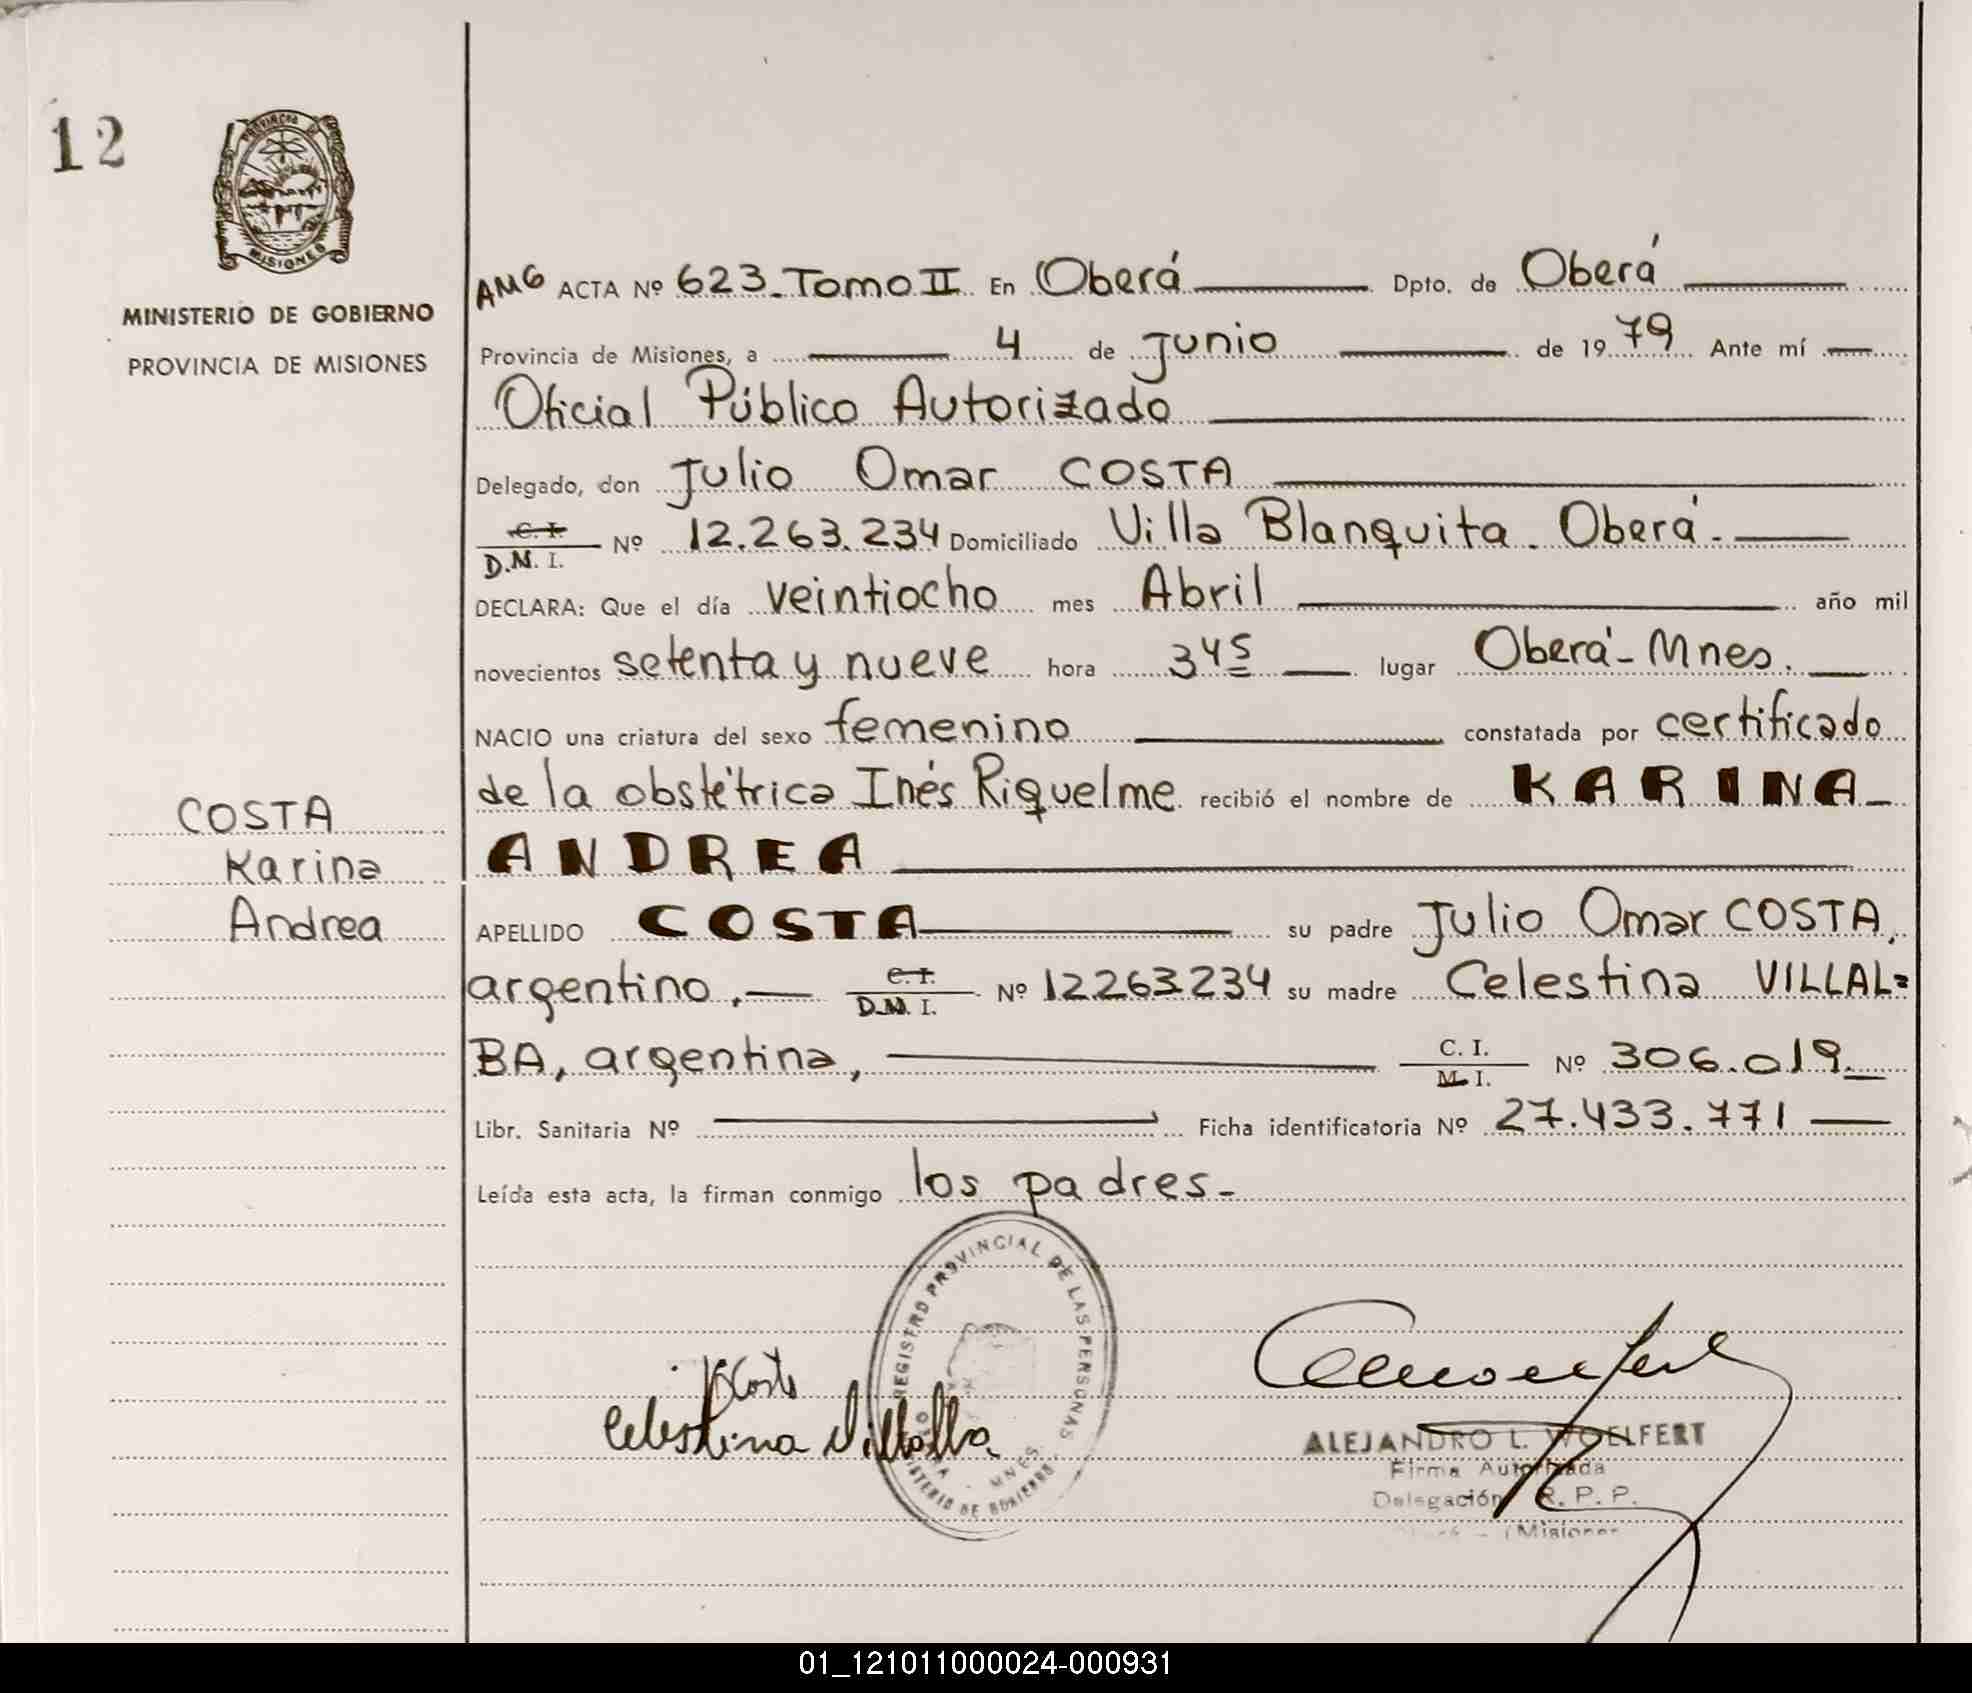 12
PROVINCIA DE
MISIONES
MINISTERIO DE GOBIERNO
PROVINCIA DE MISIONES
COSTA
Karina
Andrea
AMG ACTA Nº 623 - Tomo II En Oberá Dpto. de Oberá
Provincia de Misiones, a 4 de junio de 1979 Ante mí
Oficial Público Autorizado
Delegado, don Julio Omar COSTA
C. I.
D.M. I. Nº 12.263.234 Domiciliado Villa Blanquita - Oberá -
DECLARA: Que el día veintiocho mes Abril año mil
novecientos setenta y nueve hora 3 45 lugar Oberá - Mnes.
NACIO una criatura del sexo femenino constatada por certificado
de la obstétrica Inés Riquelme recibió el nombre de KARINA
ANDREA
APELLIDO COSTA su padre Julio Omar COSTA,
argentino, C. I.
D.M. I. Nº 12.263.234 su madre Celestina VILLAL=
BA, argentina, C. I.
M. I. Nº 306.019
Libr. Sanitaria Nº Ficha identificatoria Nº 27.433.771
Leída esta acta, la firman conmigo los padres -
REGISTRO PROVINCIAL DE LAS PERSONAS
MNES.
DE GOBIERNO
Costa
Celestina Villalba
ALEJANDRO L. WOELFERT
Firma Autorizada
Delegación R. P. P.
(Misiones
01_121011000024-000931